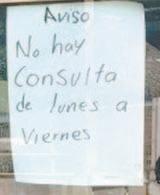 Aviso
No hay
Consulta
de lunes a
Viernes